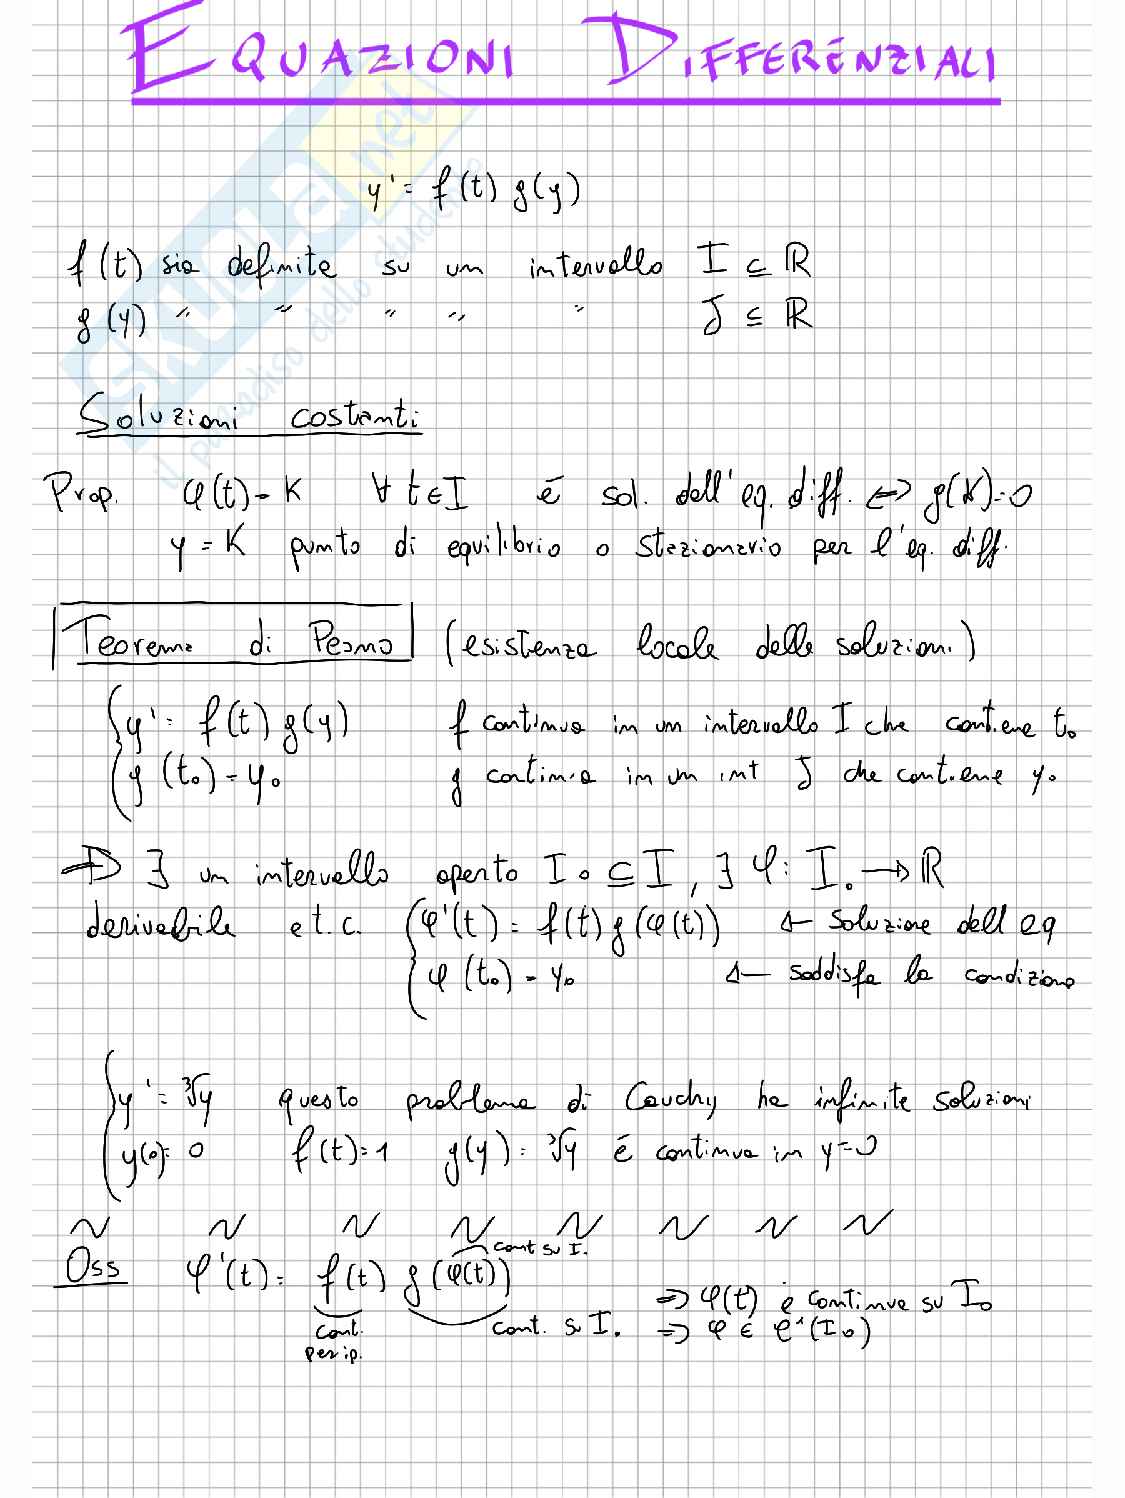 EQUAZIONI DIFFERENZIALI
y' = f(t) g(y)
f(t) sia definita su un intervallo I ⊆ ℝ
g(y) " " " " " J ⊆ ℝ
Soluzioni costanti
Prop. φ(t) = K ∀ t ∈ I é sol. dell'eq. diff. ⇔ g(K) = 0
y = K punto di equilibrio o stazionario per l'eq. diff.
Teorema di Peano (esistenza locale delle soluzioni)
y' = f(t) g(y) f continua in un intervallo I che contiene t₀
y(t₀) = y₀ g continua in un int J che contiene y₀
⇒ ∃ un intervallo aperto I₀ ⊆ I, ∃ φ: I₀ → ℝ
derivabile e t.c. φ'(t) = f(t) g(φ(t)) ← soluzione dell eq
φ(t₀) = y₀ ← soddisfa la condizione
y' = ∛y questo problema di Cauchy ha infinite soluzioni
y(0) = 0 f(t) = 1 g(y) = ∛y é continua in y=0
Oss φ'(t) = f(t) g(φ(t))
cont su I₀
cont. per ip.
cont. su I₀
⇒ φ'(t) é continua su I₀
⇒ φ ∈ C¹(I₀)
SKUOLA.net
il paradiso dello studente